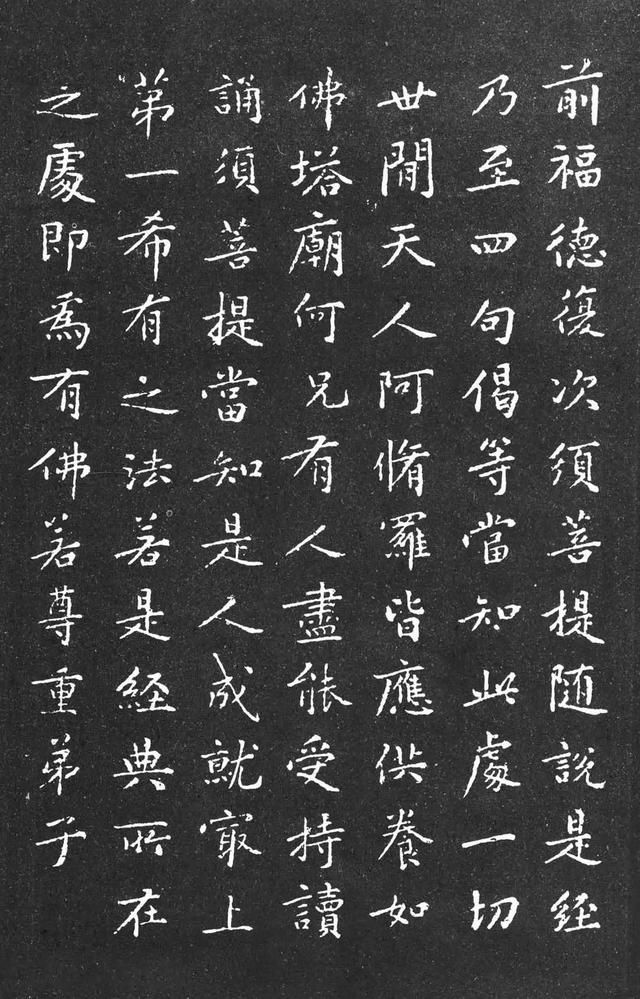 前福德復次須菩提随說是経
乃至四句偈等當知此處一切
世間天人阿脩羅皆應供養如
佛塔廟何况有人盡能受持讀
誦須菩提當知是人成就冣上
第一希有之法若是経典所在
之處即爲有佛若尊重弟子